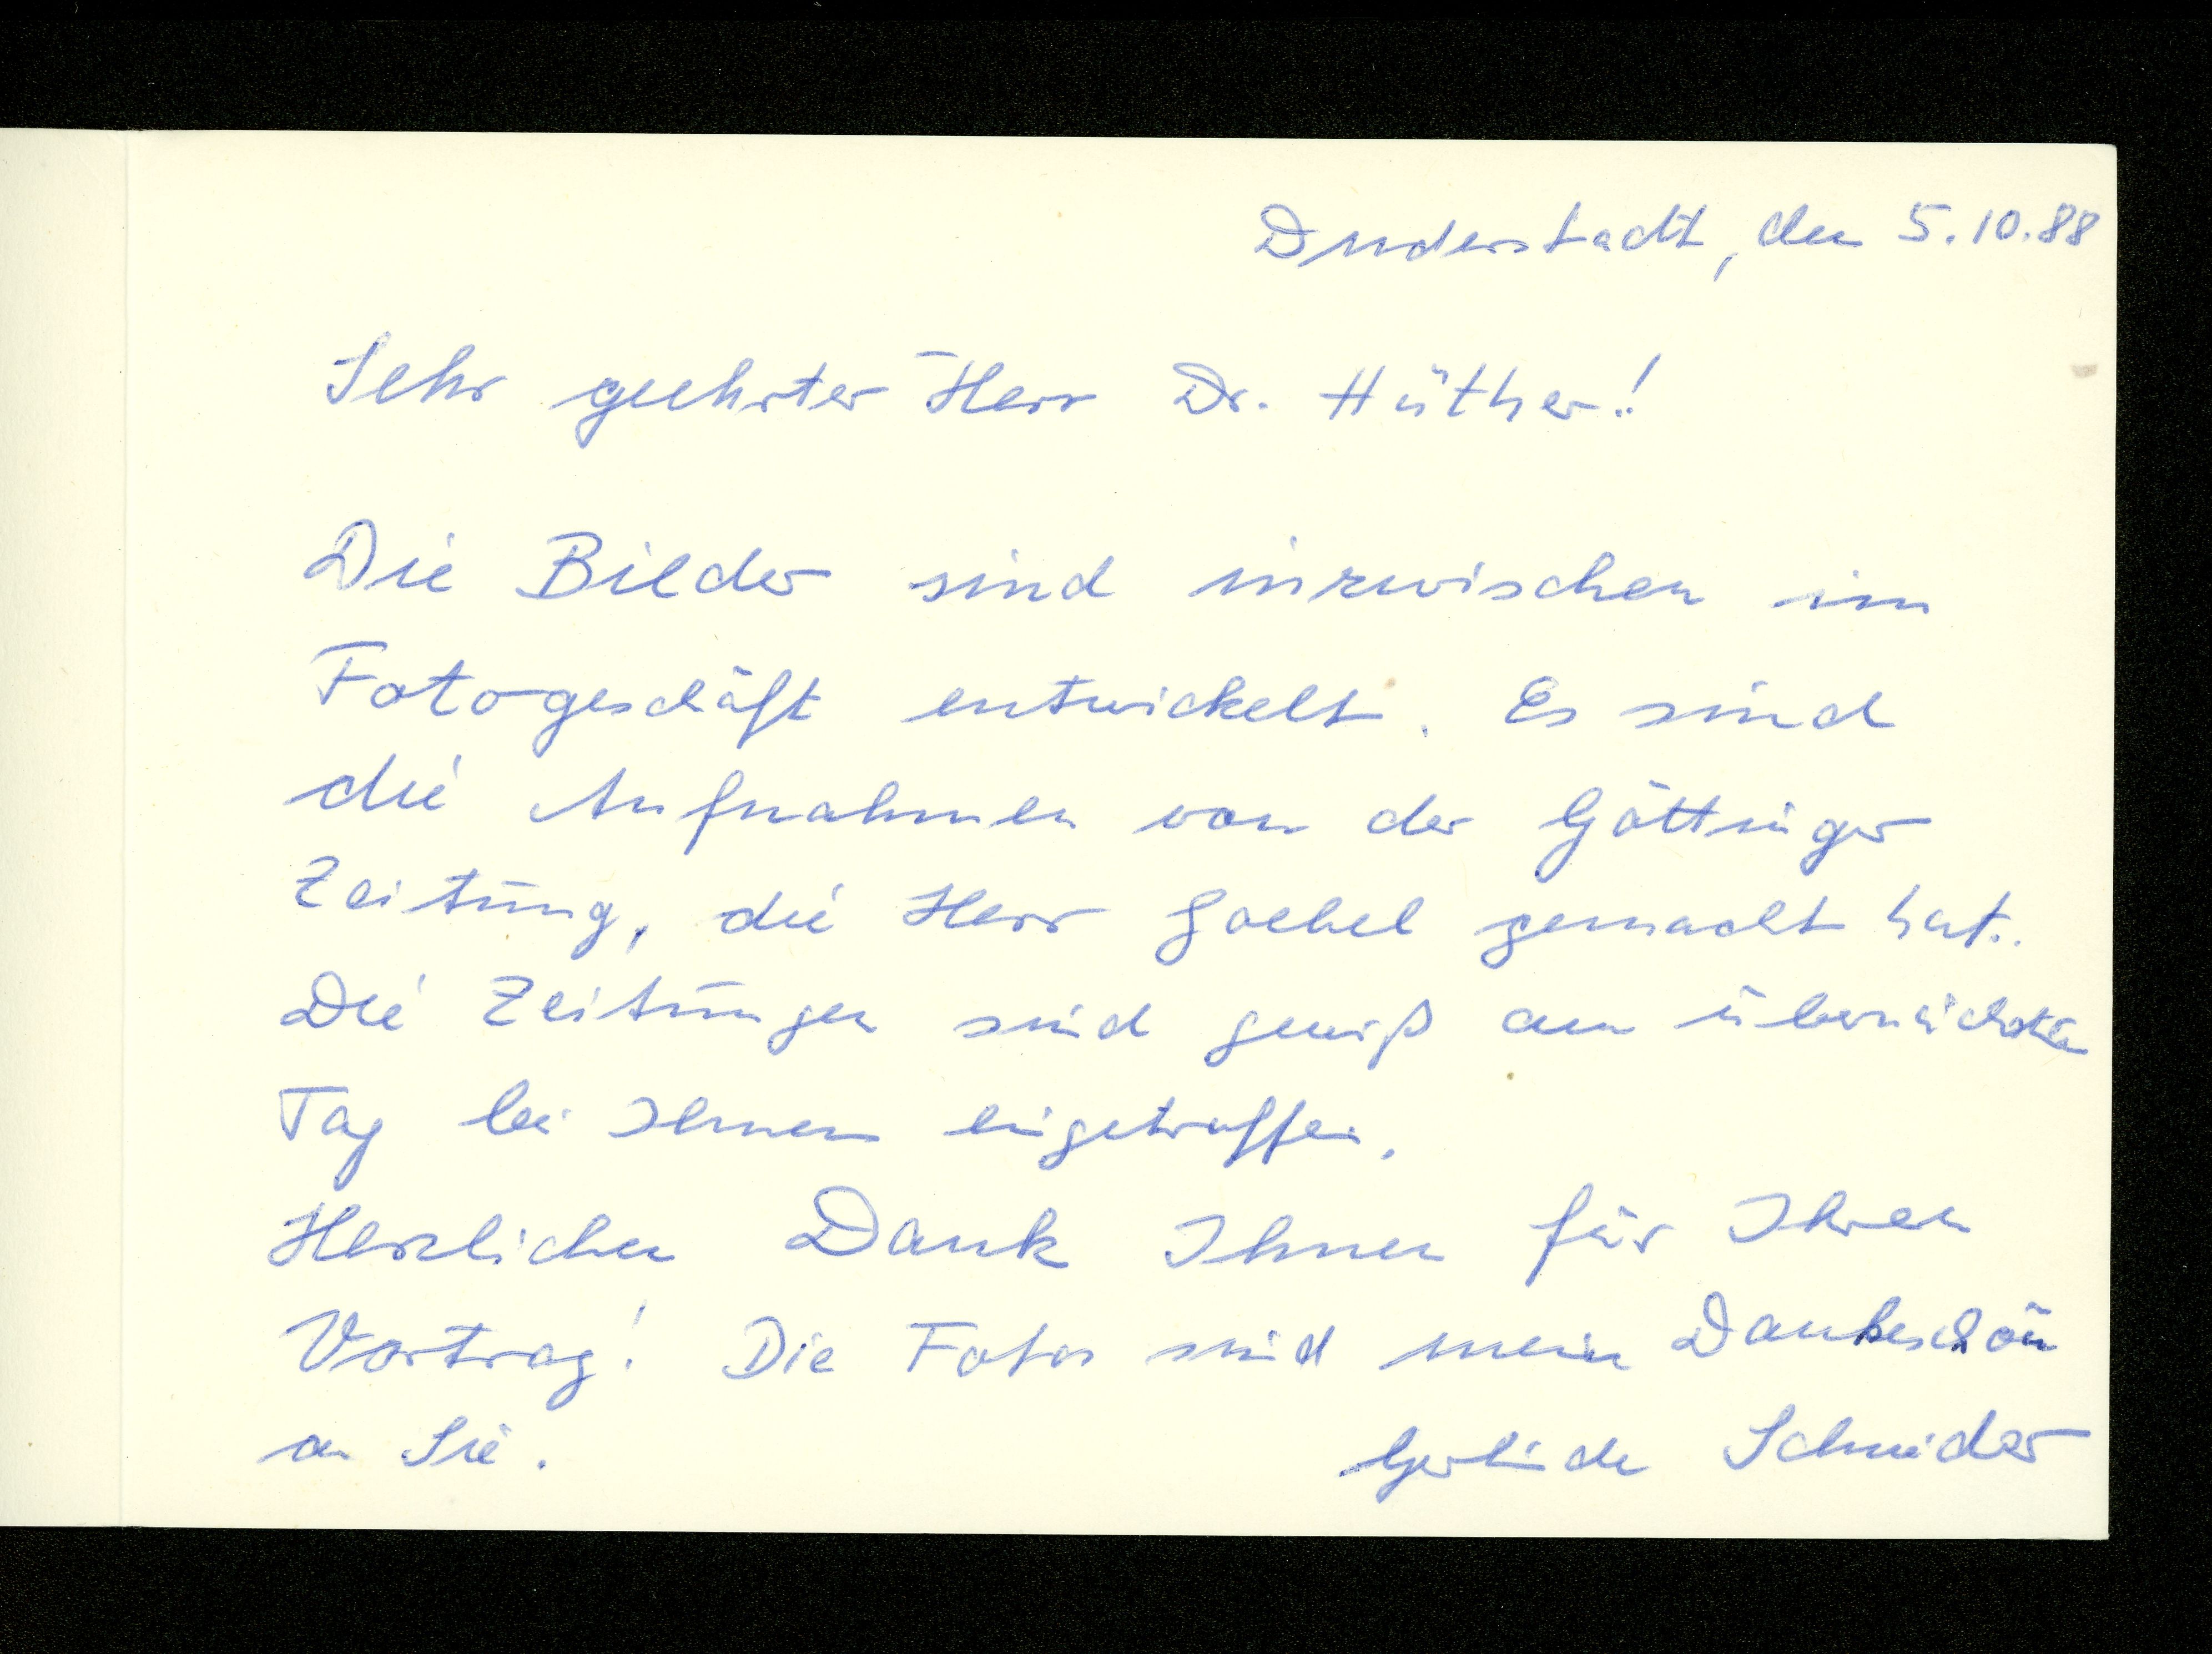 Duderstadt, den 5.10.88
Sehr geehrter Herr Dr. Hüther!
Die Bilder sind inzwischen im
Fotogeschäft entwickelt. Es sind
die Aufnahmen von der Göttinger
Zeitung, die Herr Goebel gemacht hat.
Die Zeitungen sind gewiß am übernächsten
Tag bei Ihnen eingetroffen.
Herzlichen Dank Ihnen für Ihren
Vortrag! Die Fotos sind mein Dankeschön
an Sie.
Gerlinde Schneider